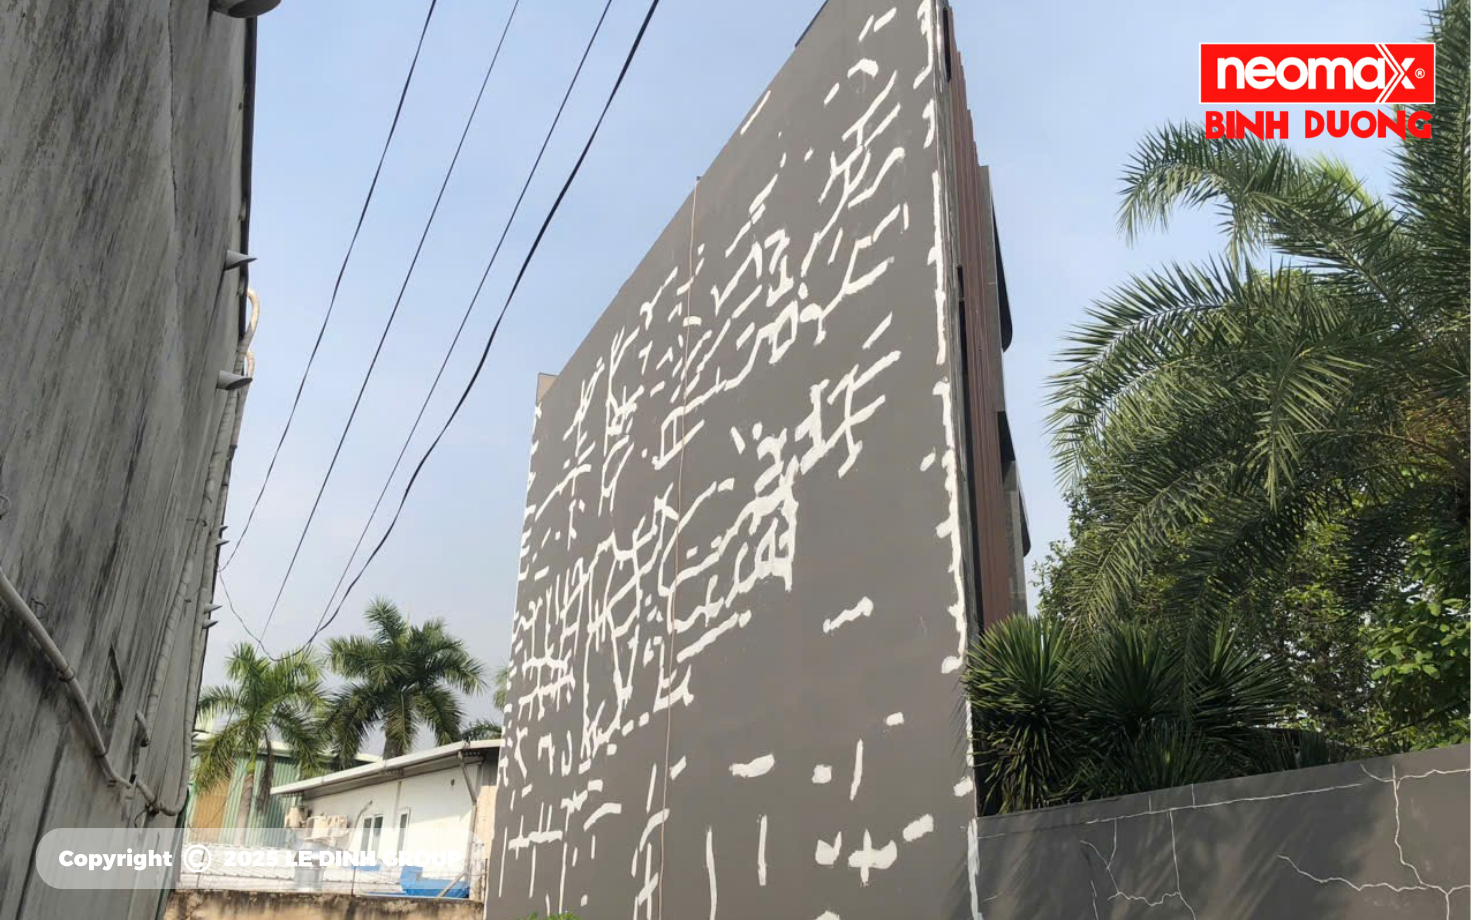 neomax®
BINH DUONG
Copyright © 2025 LE DINH GROUP